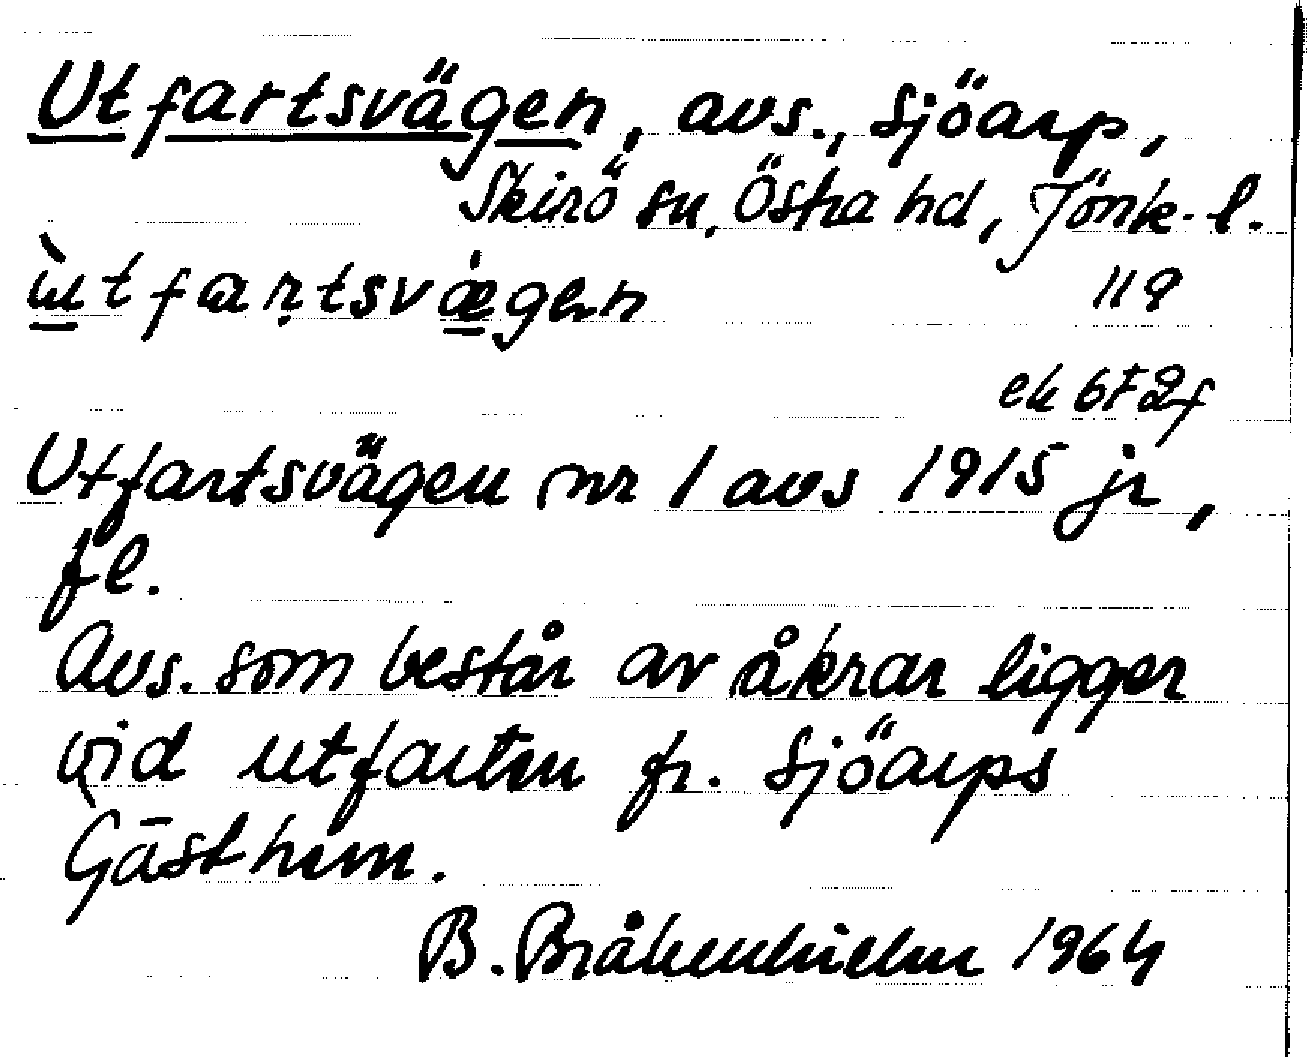 Utfartsvägen, avs., Sjöarp,
Skirö sn, Östra hd, Jönk. l.
ùtfaṛtsvǽgen 119
ek 6F2f
Utfartsvägen nr 1 avs 1915 jr,
fl.
Avs. som består av åkrar ligger
vid utfarten fr. Sjöarps
Gästhem.
B. Bråkenhielm 1964